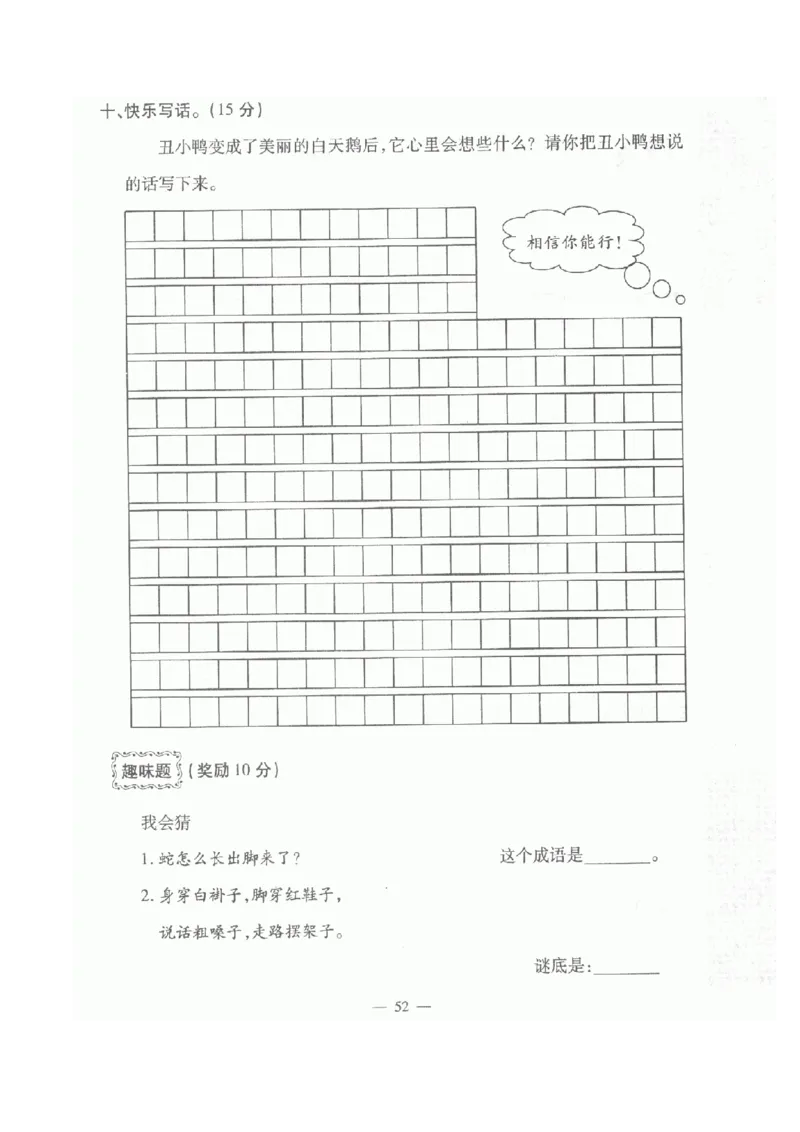 十、快乐写话。(15 分)
丑小鸭变成了美丽的白天鹅后,它心里会想些什么?请你把丑小鸭想说
的话写下来。
相信你能行!
趣味题 (奖励 10 分)
我会猜
1. 蛇怎么长出脚来了? 这个成语是________。
2. 身穿白褂子,脚穿红鞋子,
说话粗嗓子,走路摆架子。
谜底是:________
— 52 —